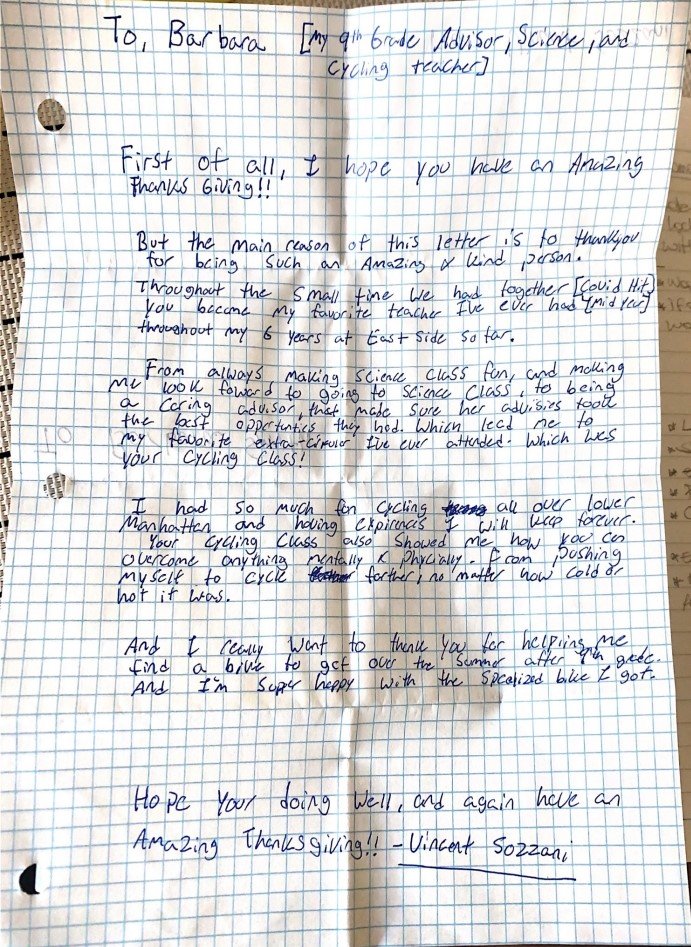 To, Barbara [My 9th Grade Advisor, Science, and
Cycling teacher]
First of all, I hope you have an Amazing
Thanks Giving!!
But the main reason of this letter is to thankyou
for being such an Amazing & kind person.
Throughout the small time we had together [Covid Hit
you become my favorite teacher I've ever had mid year]
throughout my 6 years at East Side so far.
From always making science class fun, and making
me look foward to going to science class, to being
a caring advisor, that made sure her advisies took
the best oppertunties they had. Which lead me to
my favorite extra-cirular I've ever attended. Which was
your Cycling Class!
I had so much fun cycling all over lower
Manhattan and having expirences I will keep forever.
Your cycling class also showed me how you can
overcome anything mentally & phycially. From pushing
myself to cycle farther, no matter how cold or
hot it was.
And I really want to thank you for helpiing me
find a bike to get over the summer after 9th grade.
And I'm super happy with the Specalized bike I got.
Hope your doing well, and again have an
Amazing Thanksgiving!! - Vincent Sozzani